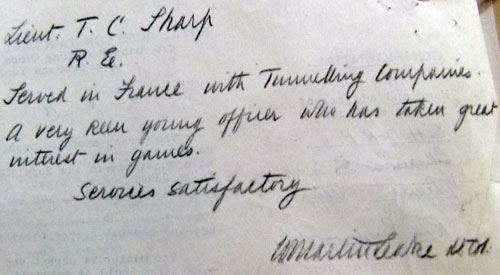 Lieut. T. C. Sharp
R. E.
Served in France with Tunnelling Companies.
A very keen young officer who has taken great
interest in games.
Services satisfactory
W Martin Leake Lt Col.